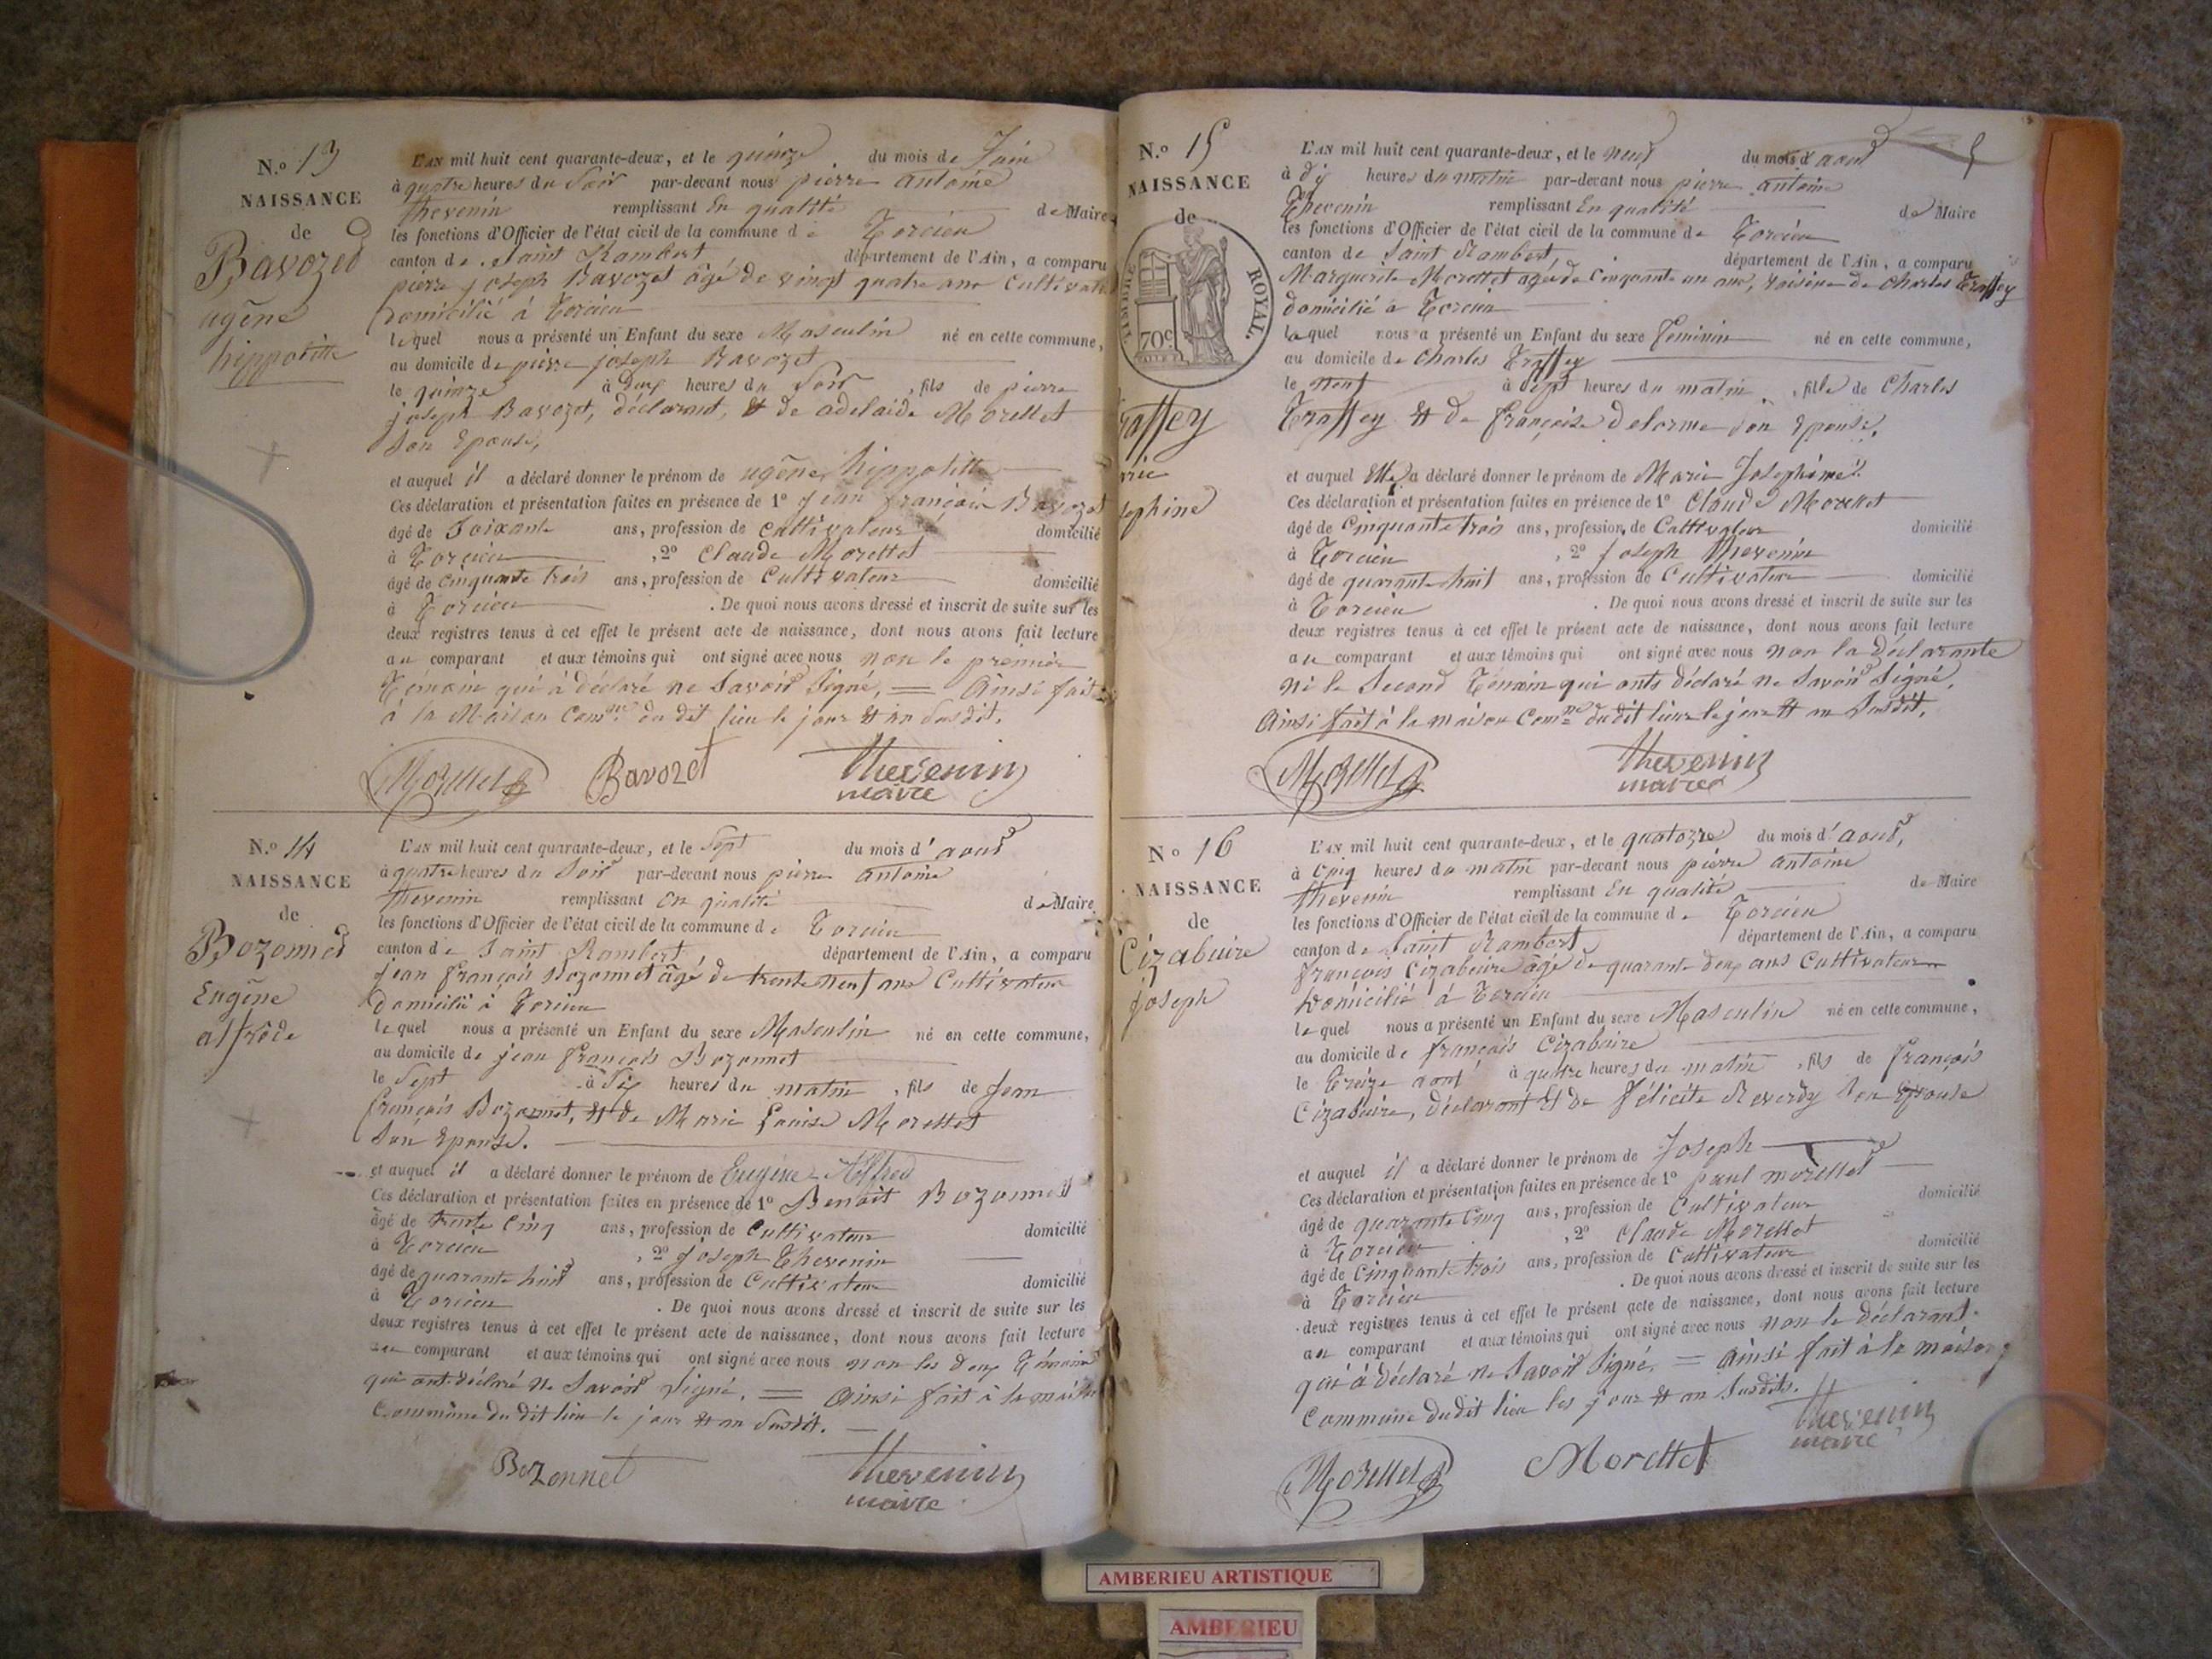 N.º 13
NAISSANCE
de
Bavozet
ugêne
hippolitte
L'AN mil huit cent quarante-deux, et le quinze du mois de Juin
à quatre heures du Soir par-devant nous pierre antoine
thevenin remplissant En qualité de Maire
les fonctions d'Officier de l'état civil de la commune de Torcieu
canton de Saint Rambert département de l'Ain, a comparu
pierre joseph Bavozet âgé de vingt quatre ans Cultivateur
Domicilié à Torcieu
lequel nous a présenté un Enfant du sexe Masculin né en cette commune,
au domicile de pierre joseph Bavozet
le quinze à deux heures du Soir, fils de pierre
joseph Bavozet, déclarant, & de adelaide Morellet
Son Epouse,
et auquel il a déclaré donner le prénom de ugêne hippolitte
Ces déclaration et présentation faites en présence de 1º jean françois Bavozet
âgé de Soixante ans, profession de Cultivateur domicilié
à Torcieu, 2º Claude Morettet
âgé de cinquante trois ans, profession de Cultivateur domicilié
à Torcieu. De quoi nous avons dressé et inscrit de suite sur les
deux registres tenus à cet effet le présent acte de naissance, dont nous avons fait lecture
au comparant et aux témoins qui ont signé avec nous non le premier
Témoin qui à déclaré ne Savoir Signé, = Ainsi fait
à la Maison Comne du dit lieu le jour & an Susdit.
Morettet Bavozet thevenin
maire
N.º 14
NAISSANCE
de
Bozonnet
Eugêne
alfrède
L'AN mil huit cent quarante-deux, et le Sept du mois d'aout
à quatre heures du Soir par-devant nous pierre antoine
thevenin remplissant en qualité de Maire
les fonctions d'Officier de l'état civil de la commune de Torcieu
canton de Saint Rambert département de l'Ain, a comparu
jean françois Bozonnet âgé de trente neuf ans Cultivateur
Domicilié à Torcieu
lequel nous a présenté un Enfant du sexe Masculin né en cette commune,
au domicile de jean françois Bozonnet
le Sept à Six heures du matin, fils de jean
françois Bozonnet, & de Marie Louise Morettet
Son Epouse.
et auquel il a déclaré donner le prénom de Eugène Alfred
Ces déclaration et présentation faites en présence de 1º Benoit Bozonnet
âgé de trente Cinq ans, profession de Cultivateur domicilié
à Torcieu, 2º joseph Thevenin
âgé de quarante huit ans, profession de Cultivateur domicilié
à Torcieu. De quoi nous avons dressé et inscrit de suite sur les
deux registres tenus à cet effet le présent acte de naissance, dont nous avons fait lecture
au comparant et aux témoins qui ont signé avec nous non les deux Témoins
qui ont déclaré ne Savoir Signé. = Ainsi fait à la maison
Commune du dit lieu le jour & an Susdit.
Bozonnet thevenin
maire
N.º 15
NAISSANCE
de
TIMBRE ROYAL.
70c
raffey
rie
sephine
5
L'AN mil huit cent quarante-deux, et le neuf du mois d aout
à dix heures du matin par-devant nous pierre antoine
Thevenin remplissant En qualité de Maire
les fonctions d'Officier de l'état civil de la commune de Torcieu
canton de Saint Rambert département de l'Ain, a comparu
Marguerite Morettet agée de Cinquante un ans, voisine de Charles Traffey
domicilié à Torcieu
lequel nous a présenté un Enfant du sexe Feminin né en cette commune,
au domicile de Charles Traffey
le neuf à Sept heures du matin, fille de Charles
Traffey & de françoise delorme son Epouse.
et auquel Elle a déclaré donner le prénom de Marie Josephine
Ces déclaration et présentation faites en présence de 1º Claude Morettet
âgé de Cinquante trois ans, profession de Cultivateur domicilié
à Torcieu, 2º Joseph thevenin
âgé de quarante huit ans, profession de Cultivateur domicilié
à Torcieu. De quoi nous avons dressé et inscrit de suite sur les
deux registres tenus à cet effet le présent acte de naissance, dont nous avons fait lecture
au comparant et aux témoins qui ont signé avec nous non la Déclarante
ni le Second Témoin qui onts déclaré ne Savoir Signé,
Ainsi fait à la maison Comne du dit lieu le jour & an Susdit,
Morettet thevenin
maire
Nº 16
NAISSANCE
de
Cizabuire
joseph
L'AN mil huit cent quarante-deux, et le quatozre du mois d'aout,
à Cinq heures du matin par-devant nous pierre antoine
thevenin remplissant En qualité de Maire
les fonctions d'Officier de l'état civil de la commune de Torcieu
canton de Saint Rambert département de l'Ain, a comparu
françois Cizabuire âgé de quarante deux ans Cultivateur
Domicilié à Torcieu
lequel nous a présenté un Enfant du sexe Masculin né en cette commune,
au domicile de françois Cizabuire
le treize aout à quatre heures du matin, fils de françois
Cizabuire, déclarant & de Félicite Reverdy Son Epouse
et auquel il a déclaré donner le prénom de Joseph
Ces déclaration et présentation faites en présence de 1º paul morettet
âgé de quarante Cinq ans, profession de Cultivateur domicilié
à Torcieu, 2º Claude Morettet
âgé de Cinquante trois ans, profession de Cultivateur domicilié
à Torcieu. De quoi nous avons dressé et inscrit de suite sur les
deux registres tenus à cet effet le présent acte de naissance, dont nous avons fait lecture
au comparant et aux témoins qui ont signé avec nous non le déclarant.
qui à déclaré ne Savoir Signé. = Ainsi fait à la maison
Commune du dit lieu les jour & an Susdits.
Morettet Morettet thevenin
maire
AMBERIEU ARTISTIQUE
AMBERIEU